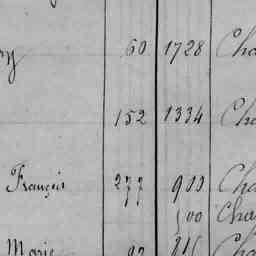 60 1728 Cha
152 1334 Cha
François 277 900 Cha
500 Cha
Marie Cha